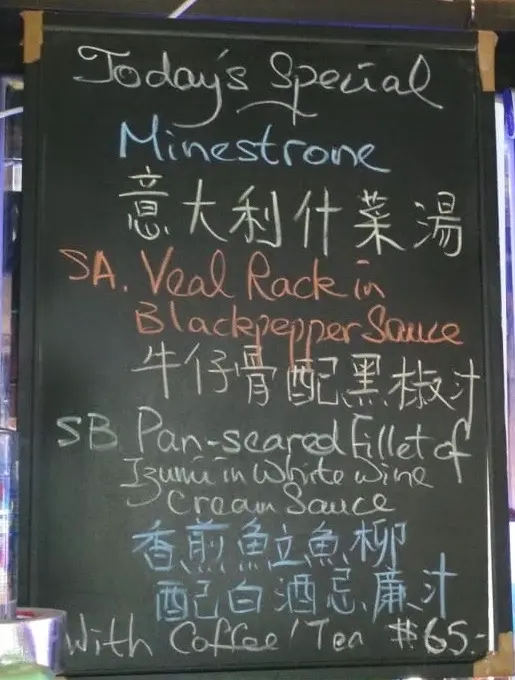 Today's Special
Minestrone
意大利什菜湯
SA. Veal Rack in
Blackpepper Sauce
牛仔骨配黑椒汁
SB. Pan-seared Fillet of
Izumi in White Wine
Cream Sauce
香煎鱼立魚柳
配白酒忌廉汁
With Coffee / Tea $65.-